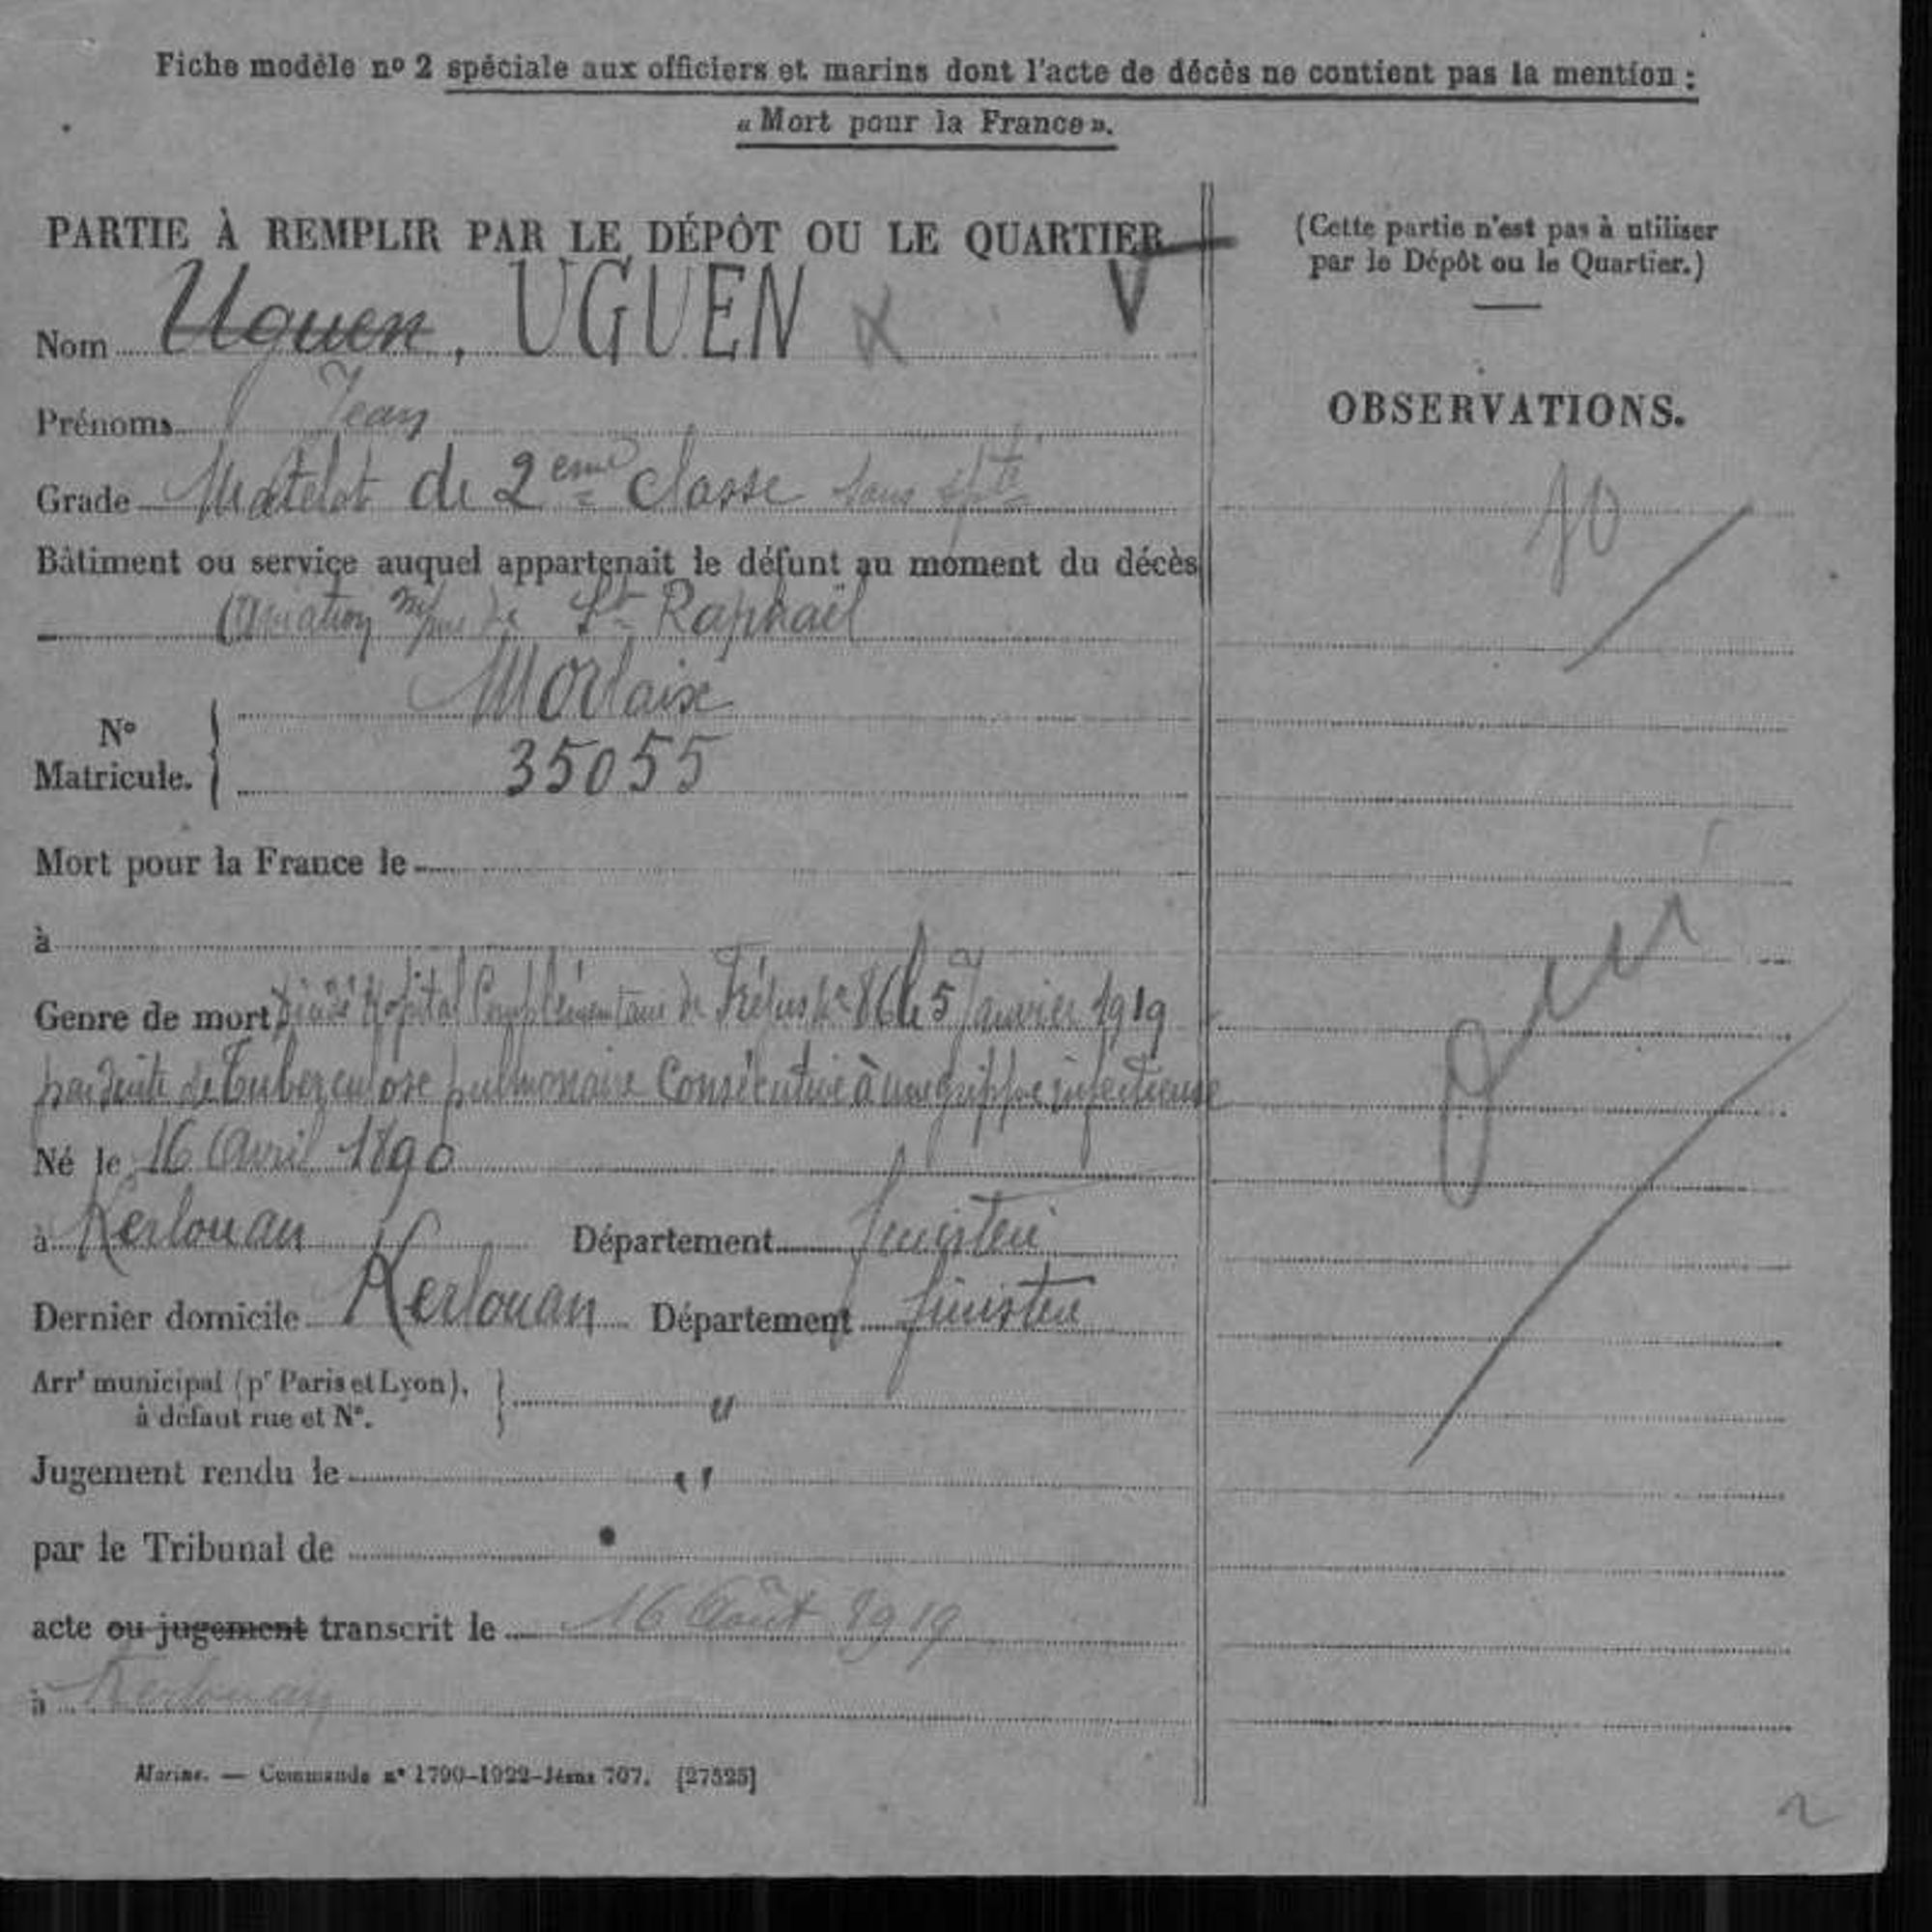 Fiche modèle nº 2 spéciale aux officiers et marins dont l'acte de décès ne contient pas la mention :
« Mort pour la France ».
PARTIE À REMPLIR PAR LE DÉPÔT OU LE QUARTIER
(Cette partie n'est pas à utiliser
par le Dépôt ou le Quartier.)
Nom Uguen, UGUEN
Prénoms Jean
OBSERVATIONS.
Grade Matelot de 2eme classe sans spté
Bâtiment ou service auquel appartenait le défunt au moment du décès
Aviation St Raphaël
Morlaix
Nº
Matricule.
35055
Mort pour la France le
à
Genre de mort Décédé Hôpital Complémentaire de Fréjus Nº 86 le 5 Janvier 1919
par suite de Tuberculose pulmonaire Consécutive à une grippe infectieuse
Né le 16 Avril 1890
à Kerlouan Département finistère
Dernier domicile Kerlouan Département finistère
Arrt municipal (pr Paris et Lyon),
à défaut rue et Nº. "
Jugement rendu le "
par le Tribunal de
acte ou jugement transcrit le 16 Août 1919
à Kerlouan
Marine. — Commande nº 1790-1922-Jésus 707. [27525]
2